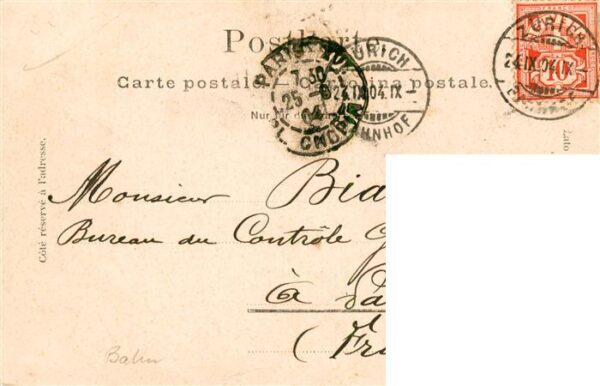 Postkarte
Carte postale.
postale.
Nur für
Côté réservé à l'adresse.
ZÜRICH
24.IX.04.IX-
BAHNHOF
PARIS
7 30
25
04
PL. CHOPIN
ZÜRICH
24.IX.04.IX
FRANCO
10
Monsieur Bia
Bureau du Contrôle G
à Pa
(Fr
Bahn